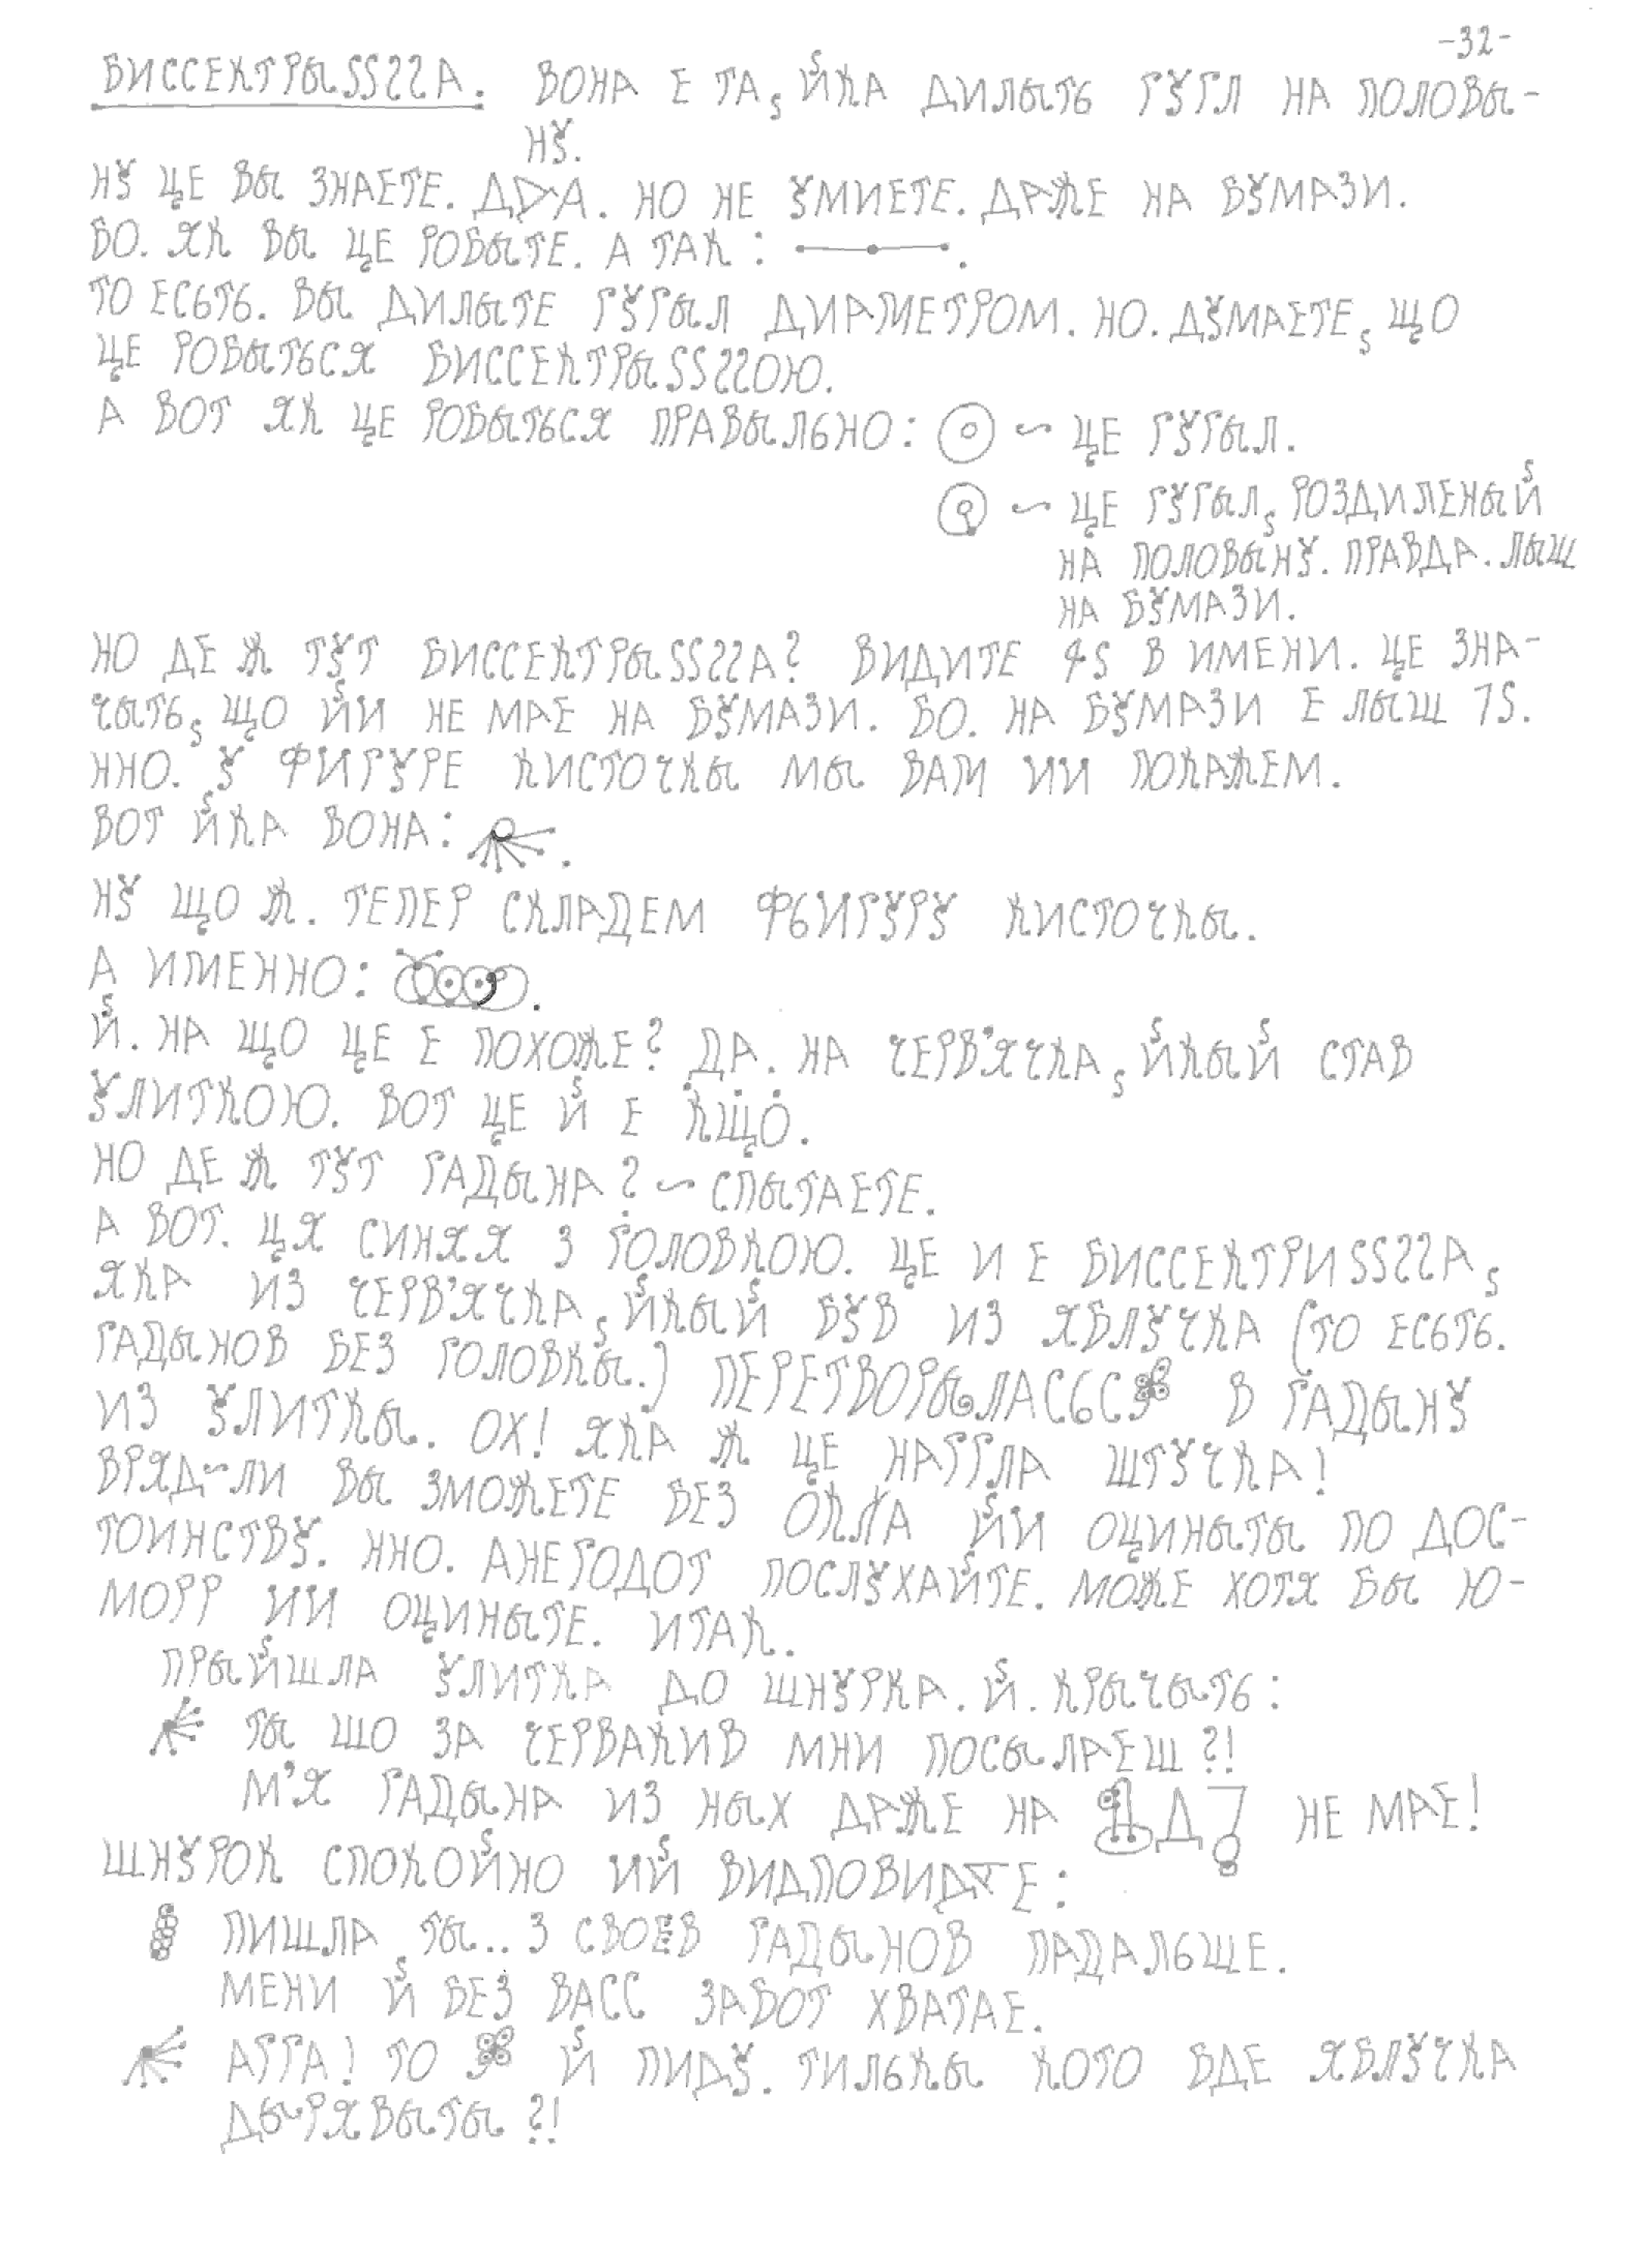 -32-
БИССЕКТРЫSSƧƧА. ВОНА Е ТА, ЙКА ДИЛЫТЬ ГУГЛ НА ПОЛОВЫ-
НУ.
НУ ЦЕ ВЫ ЗНАЕТЕ. ДДА. НО НЕ УМИЕТЕ. ДАЖЕ НА БУМАЗИ.
БО. ЯК ВЫ ЦЕ РОБЫТЕ. А ТАК: .
ТО ЕСЬТЬ. ВЫ ДИЛЫТЕ ГУГЫЛ ДИАМЕТРОМ. НО. ДУМАЕТЕ, ЩО
ЦЕ РОБЫТЬСЯ БИССЕКТРЫSSƧƧОЮ.
А ВОТ ЯК ЦЕ РОБЫТЬСЯ ПРАВЫЛЬНО: ~ ЦЕ ГУГЫЛ.
~ ЦЕ ГУГЫЛ, РОЗДИЛЕНЫЙ
НА ПОЛОВЫНУ. ПРАВДА. ЛЫШ
НА БУМАЗИ.
НО ДЕ Ж ТУТ БИССЕКТРЫSSƧƧА? ВИДИТЕ 4S В ИМЕНИ. ЦЕ ЗНА-
ЧЫТЬ, ЩО ЙИ НЕ МАЕ НА БУМАЗИ. БО. НА БУМАЗИ Е ЛЫШ 1S.
ННО. У ФИГУРЕ КИСТОЧКЫ МЫ ВАМ ИИ ПОКАЖЕМ.
ВОТ ЙКА ВОНА: .
НУ ЩО Ж. ТЕПЕР СКЛАДЕМ ФЬИГУРУ КИСТОЧКЫ.
А ИМЕННО: .
Й. НА ЩО ЦЕ Е ПОХОЖЕ? ДА. НА ЧЕРВ'ЯЧКА, ЙКЫЙ СТАВ
УЛИТКОЮ. ВОТ ЦЕ Й Е КЩО.
НО ДЕ Ж ТУТ ГАДЫНА? ~ СПЫТАЕТЕ.
А ВОТ. ЦЯ СИНЯЯ З ГОЛОВКОЮ. ЦЕ И Е БИССЕКТРИSSƧƧА,
ЯКА ИЗ ЧЕРВ'ЯЧКА, ЙКЫЙ БУВ ИЗ ЯБЛУЧКА (ТО ЕСЬТЬ.
ГАДЫНОВ БЕЗ ГОЛОВКЫ.) ПЕРЕТВОРЫЛАСЬСЯ В ГАДЫНУ
ИЗ УЛИТКЫ. ОХ! ЯКА Ж ЦЕ НАГГЛА ШТУЧКА!
ВРЯД~ЛИ ВЫ ЗМОЖЕТЕ БЕЗ ОКЛА ЙИ ОЦИНЫТЫ ПО ДОС-
ТОИНСТВУ. ННО. АНЕГОДОТ ПОСЛУХАЙТЕ. МОЖЕ ХОТЯ БЫ Ю-
МОРР ИИ ОЦИНЫТЕ. ИТАК.
ПРЫЙШЛА УЛИТКА ДО ШНУРКА. Й. КРЫЧЫТЬ:
ТЫ ШО ЗА ЧЕРВАКИВ МНИ ПОСЫЛАЕШ?!
М'Я ГАДЫНА ИЗ НЫХ ДАЖЕ НА Д НЕ МАЕ!
ШНУРОК СПОКОЙНО ИЙ ВИДПОВИДАЕ:
ПИШЛА ТЫ.. З СВОЕВ ГАДЫНОВ ПАДАЛЬШЕ.
МЕНИ Й БЕЗ ВАСС ЗАБОТ ХВАТАЕ.
АГГА! ТО Я Й ПИДУ. ТИЛЬКЫ КОТО БДЕ ЯБЛУЧКА
ДЫРЯВЫТЫ?!